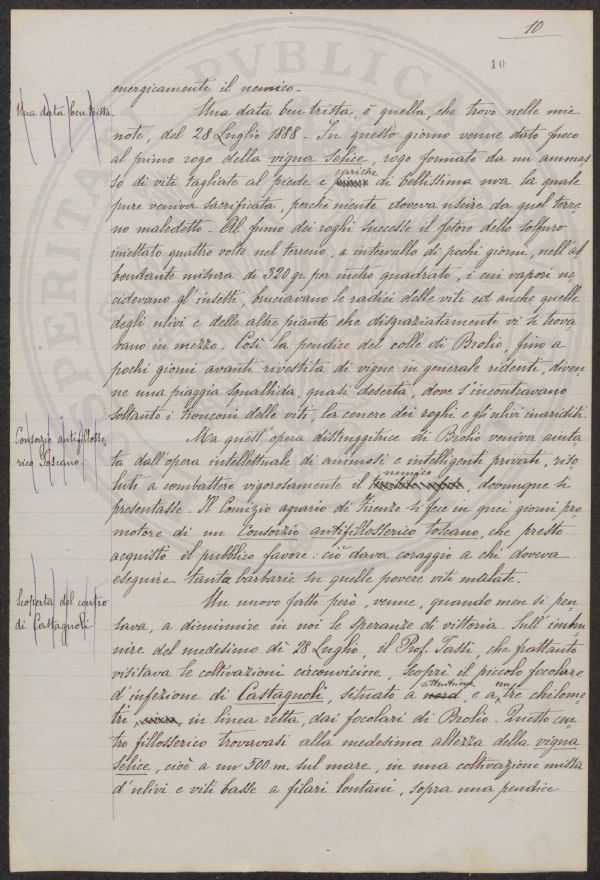 10
10
energicamente il nemico.
Una data ben trista.
Una data ben trista, è quella, che trovo nelle mie
note, del 28 Luglio 1888 - In questo giorno venne dato fuoco
al primo rogo della vigna Selice, rogo formato da un ammas
so di viti tagliate al piede e cariche di bellissima uva, la quale
pure veniva sacrificata, perchè niente doveva uscire da quel terre
no maledetto - Al fumo dei roghi successe il fetore dello solfuro
iniettato quattro volte nel terreno, a intervallo di pochi giorni, nell'ab
bondante misura di 320 gr. per metro quadrato, i cui vapori uc
cidevano gl'insetti, bruciavano le radici delle viti ed anche quelle
degli ulivi e delle altre piante che disgraziatamente vi si trova
vano in mezzo. Così la pendice del colle di Brolio, fino a
pochi giorni avanti rivestita di vigne in generale ridente, diven
ne una piaggia squallida, quasi deserta, dove s'incontravano
soltanto i tronconi delle viti, la cenere dei roghi e gli ulivi inariditi.
Consorzio antifillosse-
rico Toscano.
Ma quest'opera distruggitrice di Brolio veniva aiuta
ta dall'opera intellettuale di animosi e intelligenti privati, riso
luti a combattere vigorosamente il nemico, dovunque si
presentasse. Il Comizio agrario di Firenze si fece in quei giorni pro
motore di un Consorzio antifillosserico toscano, che presto
acquistò il pubblico favore: ciò dava coraggio a chi doveva
eseguire tanta barbarie su quelle povere viti malate.
Scoperta del centro
di Castagnoli
Un nuovo fatto però, venne, quando men si pen
sava, a diminuire in noi le speranze di vittoria. Sull'imbru
nire del medesimo dì 28 Luglio, il Prof. Tassi, che frattanto
visitava le coltivazioni circonvicine, scoprì il piccolo focolare
d'infezione di Castagnoli, situato a nord settentrione, e a tre chilome
tri, in linea retta, dai focolari di Brolio - Questo cen
tro fillosserico trovavasi alla medesima altezza della vigna
Selice, cioè a un 500 m. sul mare, in una coltivazione mista
d'ulivi e viti basse a filari lontani, sopra una pendice